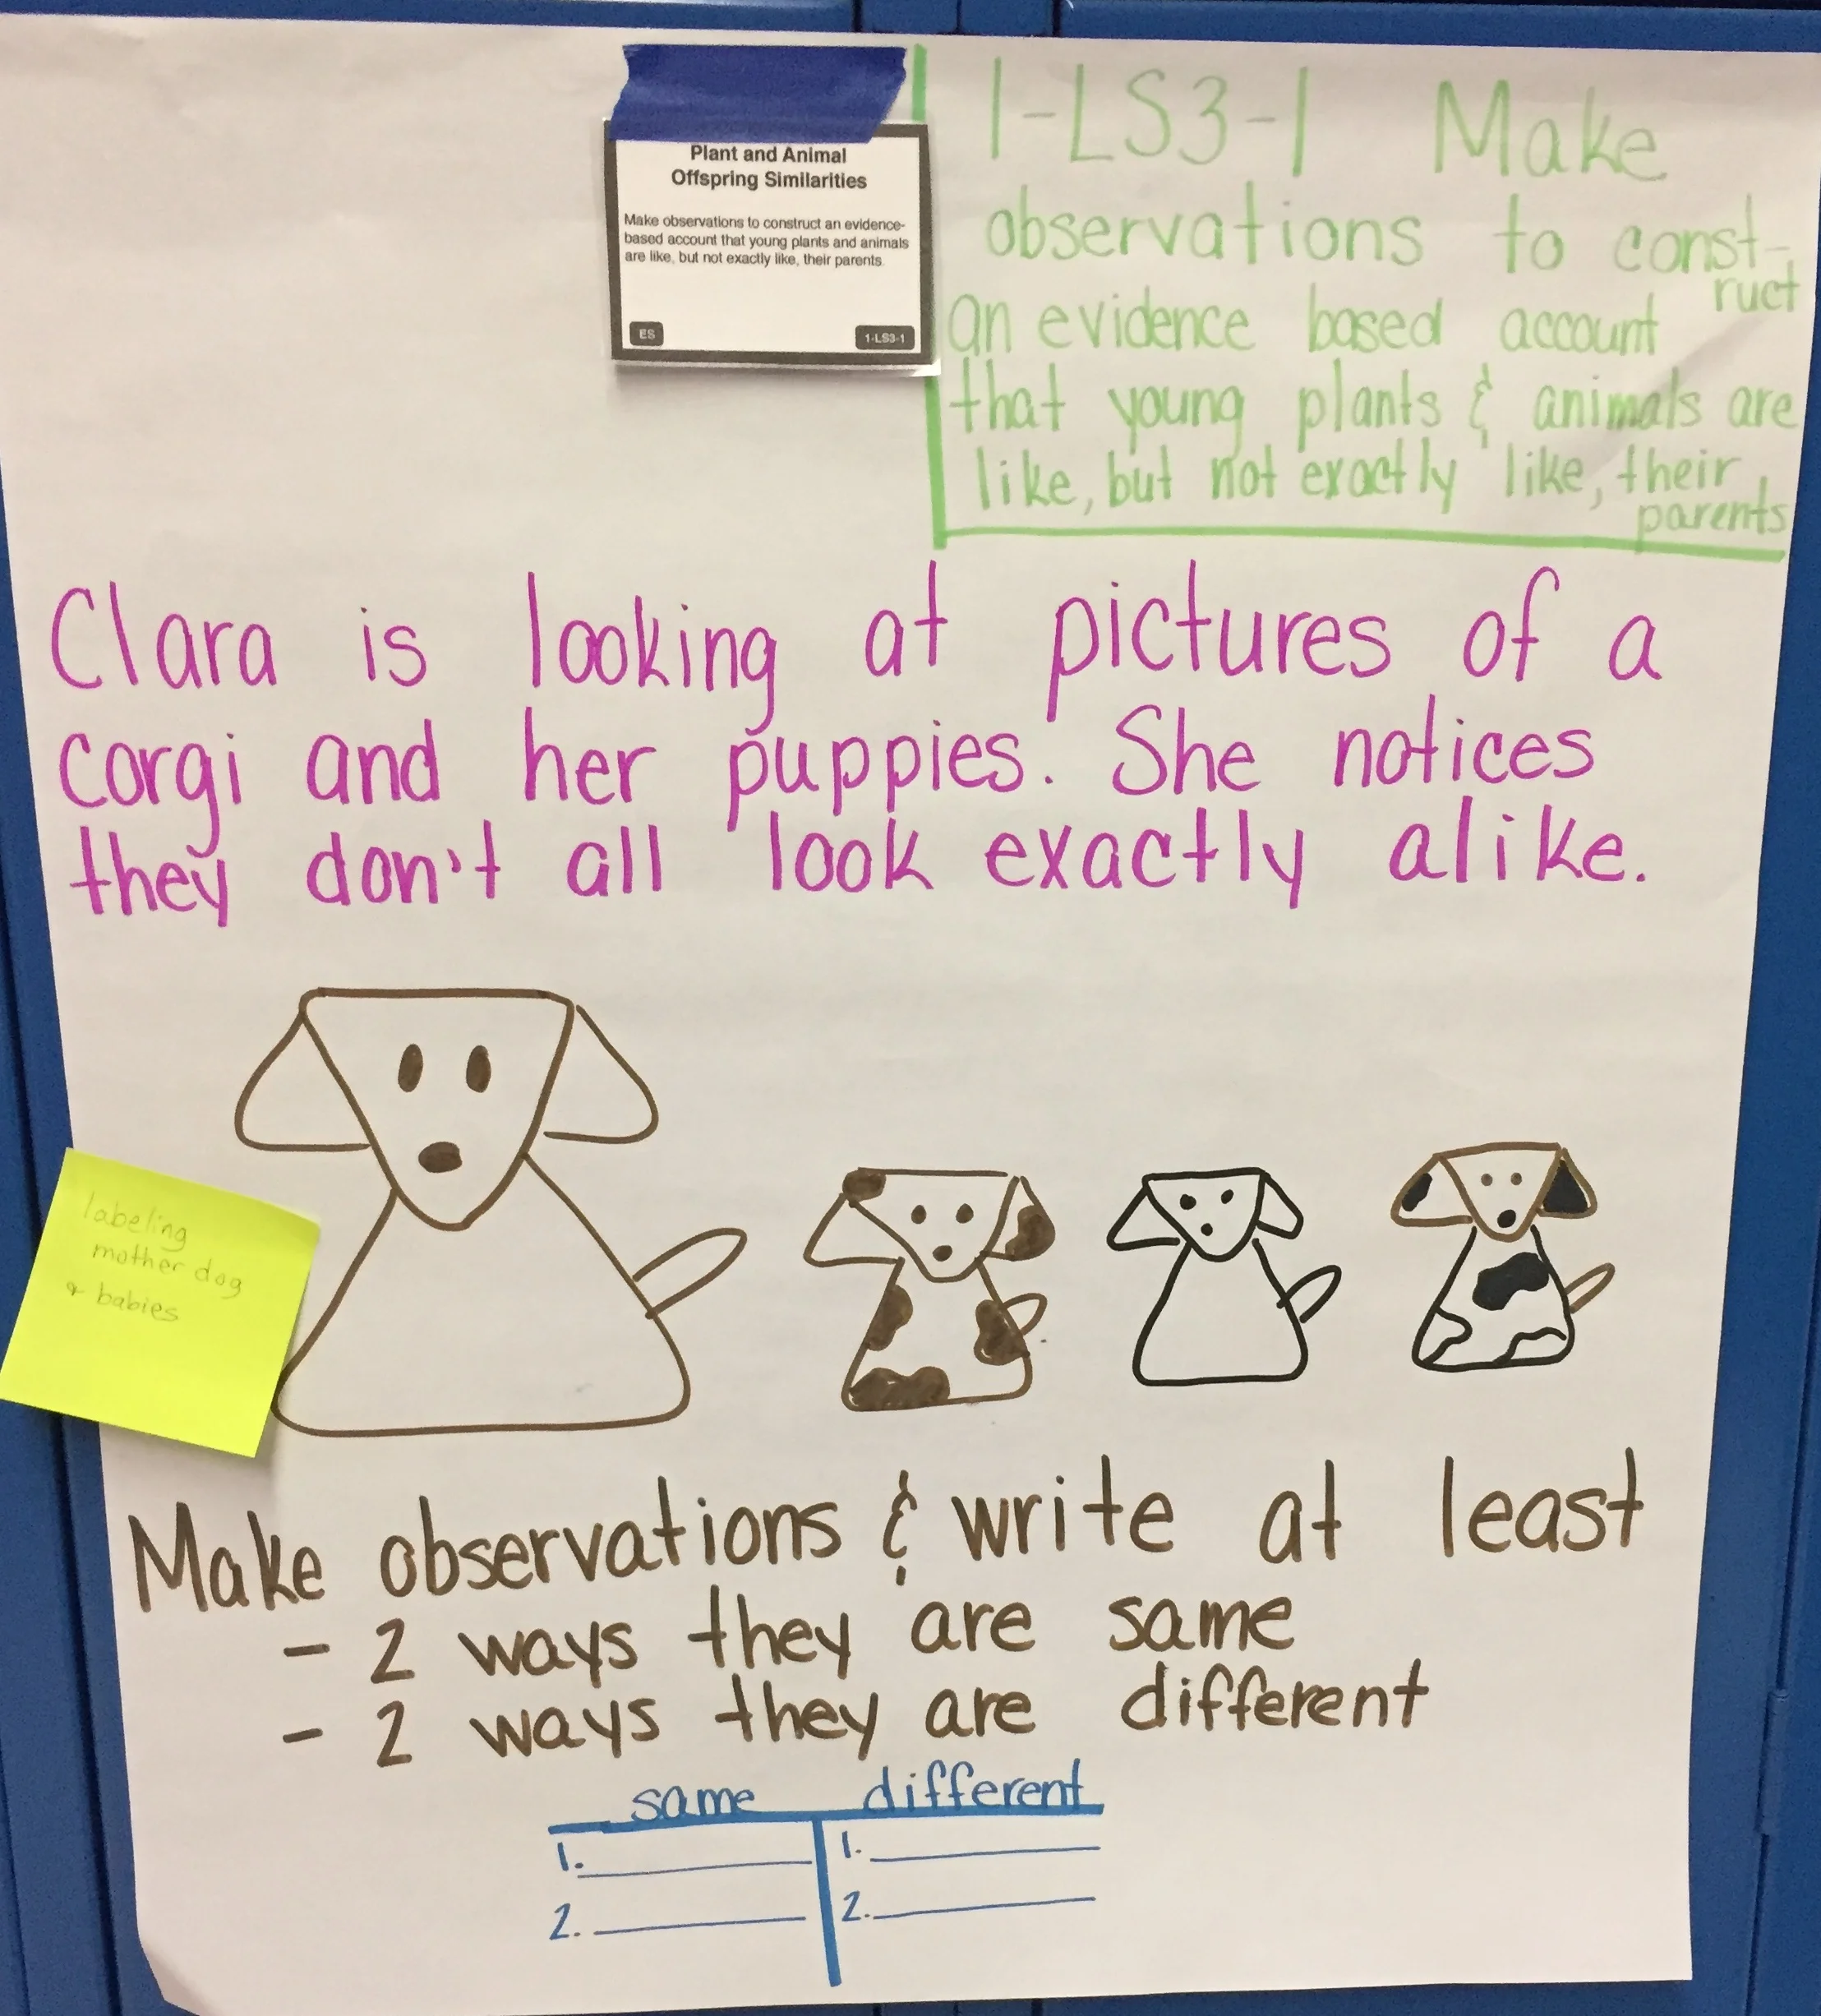 Plant and Animal
Offspring Similarities
Make observations to construct an evidence-
based account that young plants and animals
are like, but not exactly like, their parents
ES
1-LS3-1
1-LS3-1 Make
observations to const-
ruct
an evidence based account
that young plants & animals are
like, but not exactly like, their
parents
Clara is looking at pictures of a
corgi and her puppies. She notices
they don't all look exactly alike.
labeling
mother dog
& babies
Make observations & write at least
- 2 ways they are same
- 2 ways they are different
same different
1. 1.
2. 2.